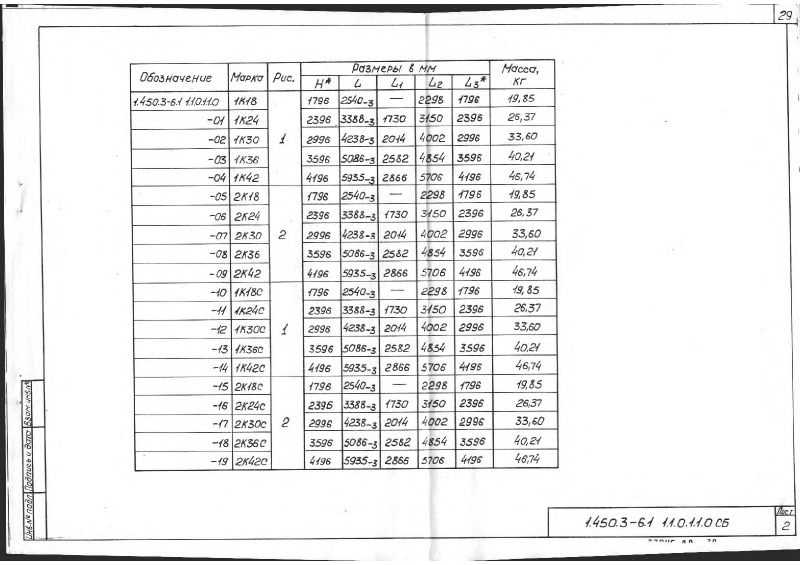 29
Обозначение Марка Рис. Размеры в мм Масса, кг
H* L L1 L2 L3*
1.450.3-6.1 1.1.0.1.1.0 1К18 1 1796 2540-3 — 2298 1796 19,85
-01 1К24 2396 3388-3 1730 3150 2396 26,37
-02 1К30 2996 4238-3 2014 4002 2996 33,60
-03 1К36 3596 5086-3 2582 4854 3596 40,21
-04 1К42 4196 5935-3 2866 5706 4196 46,74
-05 2К18 2 1796 2540-3 — 2298 1796 19,85
-06 2К24 2396 3388-3 1730 3150 2396 26,37
-07 2К30 2996 4238-3 2014 4002 2996 33,60
-08 2К36 3596 5086-3 2582 4854 3596 40,21
-09 2К42 4196 5935-3 2866 5706 4196 46,74
-10 1К18С 1 1796 2540-3 — 2298 1796 19,85
-11 1К24С 2396 3388-3 1730 3150 2396 26,37
-12 1К30С 2996 4238-3 2014 4002 2996 33,60
-13 1К36С 3596 5086-3 2582 4854 3596 40,21
-14 1К42С 4196 5935-3 2866 5706 4196 46,74
-15 2К18С 2 1796 2540-3 — 2298 1796 19,85
-16 2К24С 2396 3388-3 1730 3150 2396 26,37
-17 2К30С 2996 4238-3 2014 4002 2996 33,60
-18 2К36С 3596 5086-3 2582 4854 3596 40,21
-19 2К42С 4196 5935-3 2866 5706 4196 46,74
Инв.№ подл. Подпись и дата Взам.инв.№
1.450.3-6.1 1.1.0.1.1.0 СБ
Лист
2